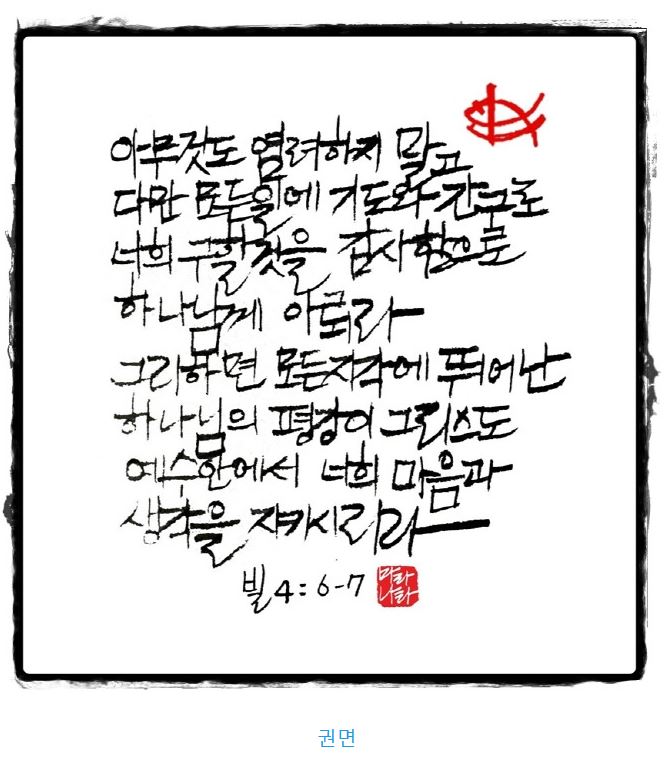 아무것도 염려하지 말고
다만 모든일에 기도와 간구로
너희 구할것을 감사함으로
하나님께 아뢰라
그리하면 모든지각에 뛰어난
하나님의 평강이 그리스도
예수안에서 너희 마음과
생각을 지키시리라
빌 4:6-7 마라나타
권면